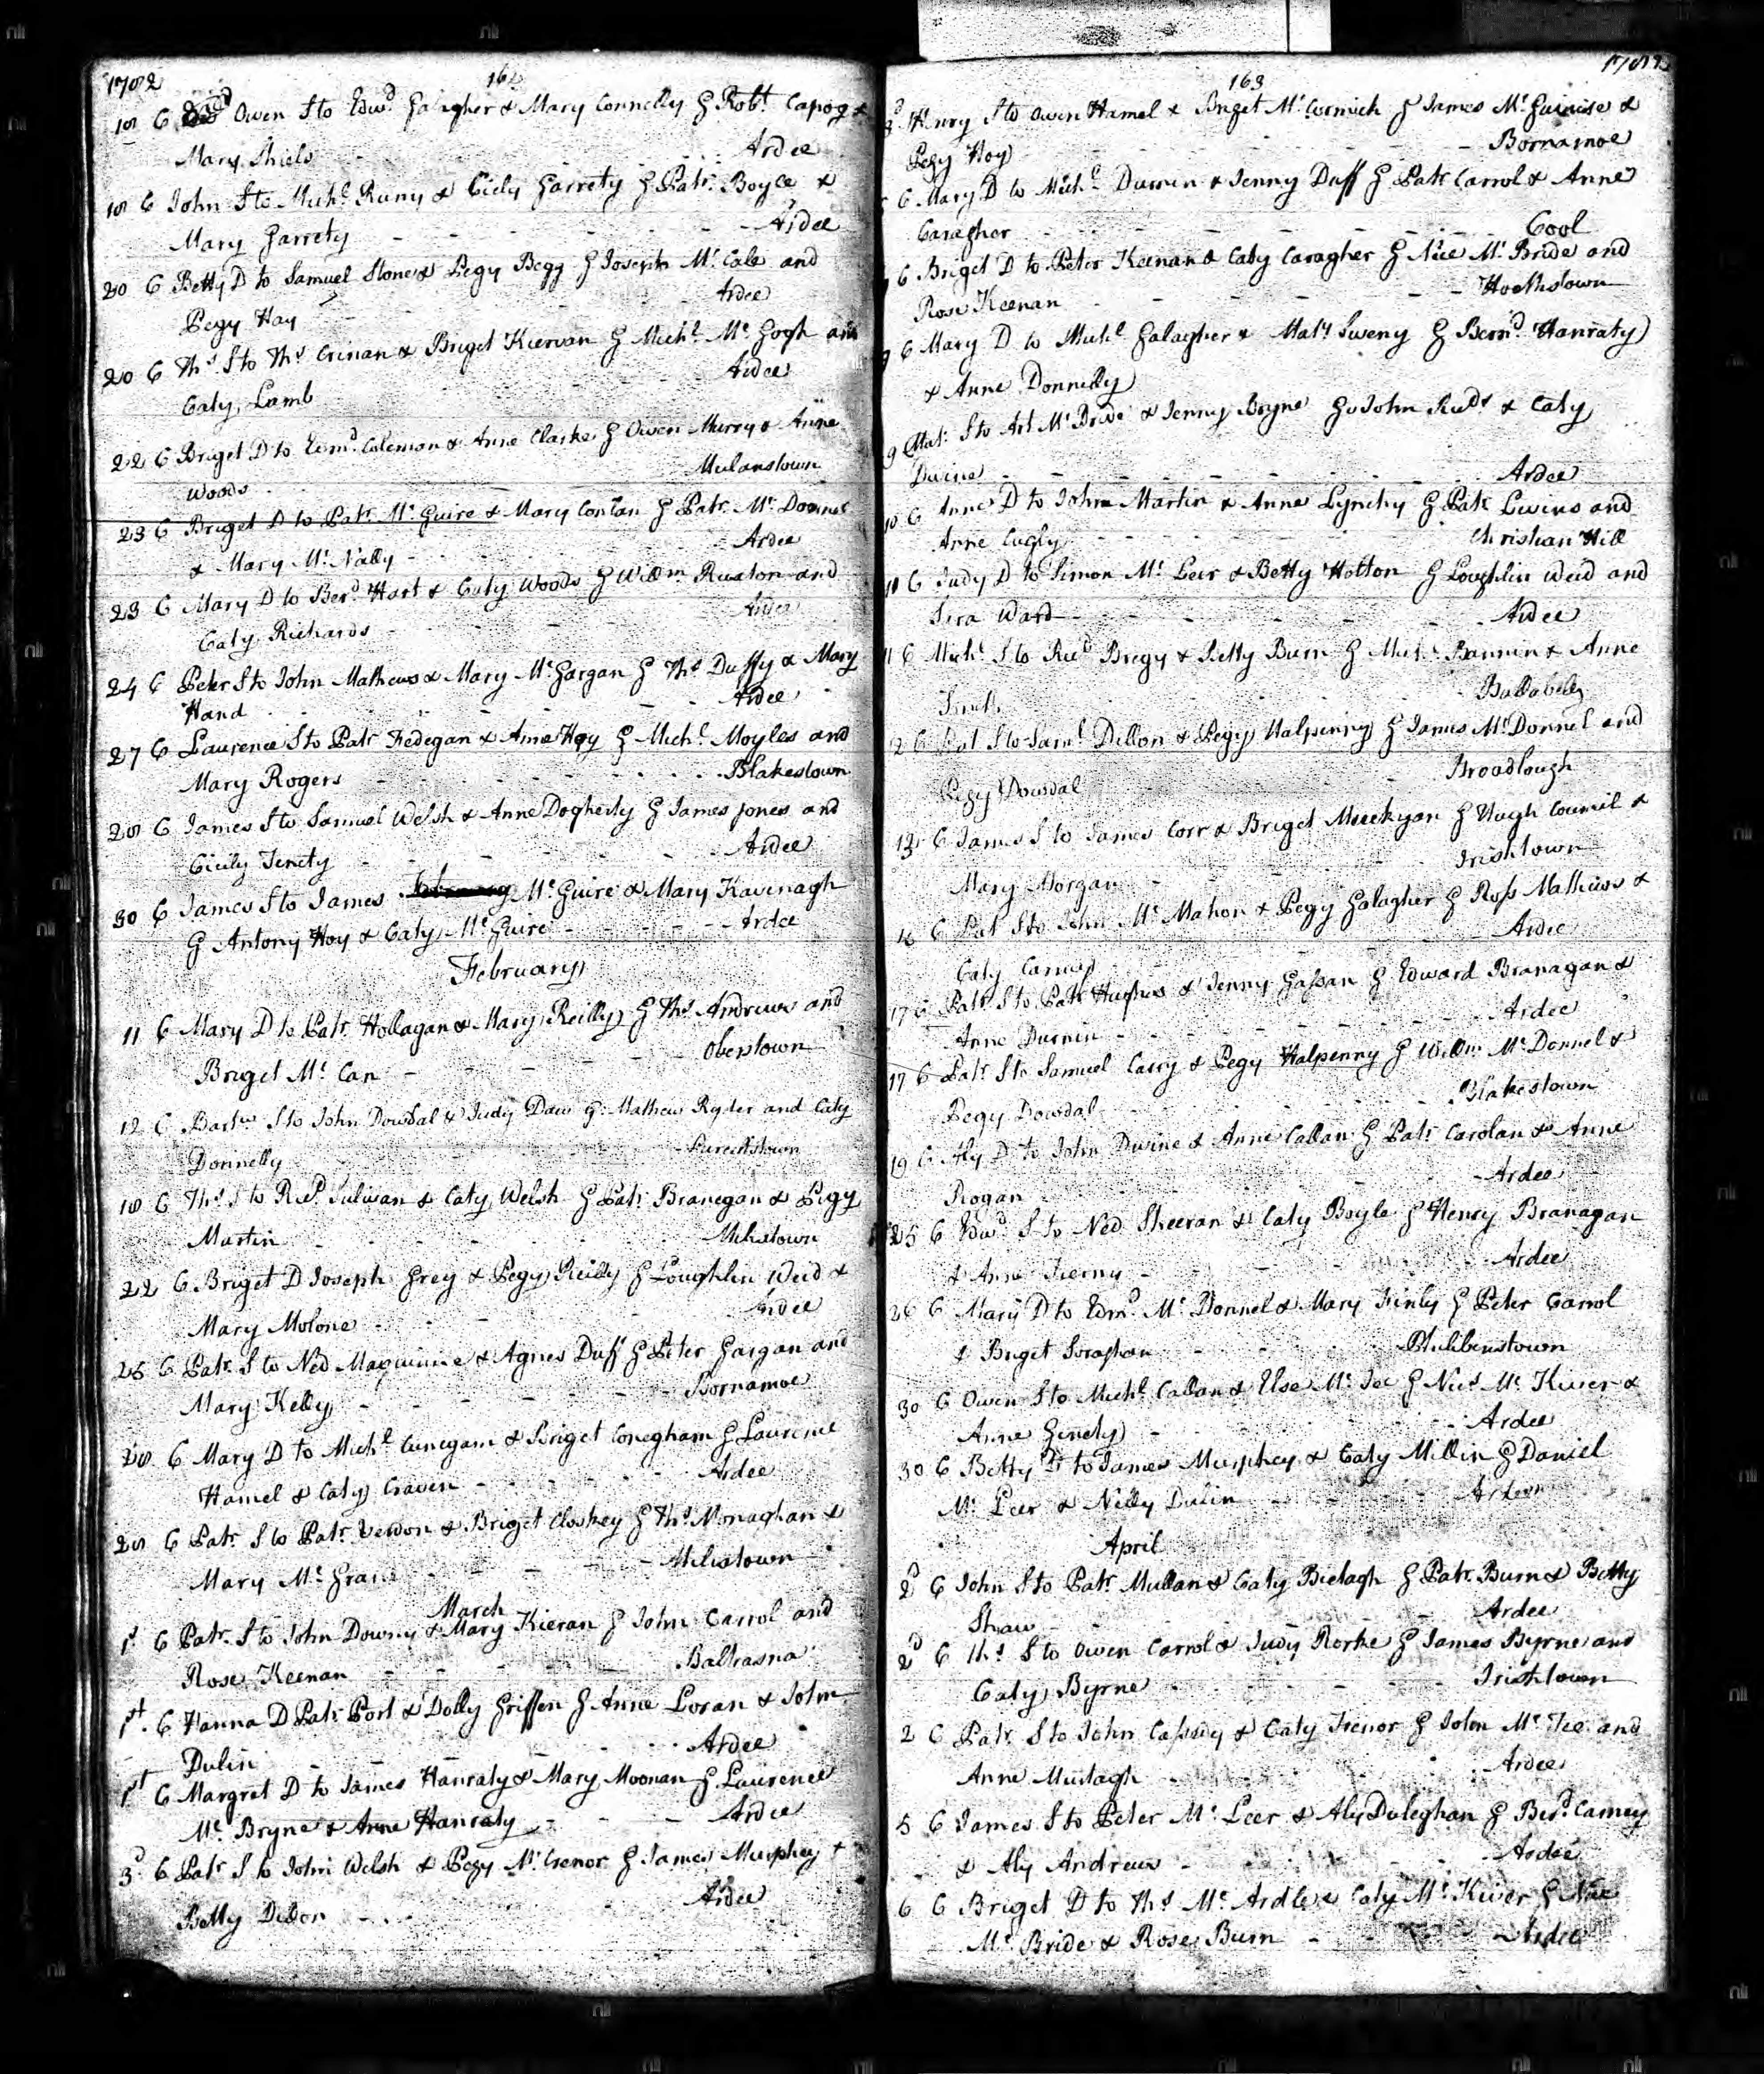 1782
16
18 C Owen S to Edwd. Galagher & Mary Connelly G Robt. Capog &
Mary Shiels Ardee
18 C John S to Michl. Runy & Cicly Garrety G Patr. Boyce &
Mary Garrety - - - - Ardee
20 C Betty D to Samuel Stone & Pegy Begg G Joseph Mc. Cabe and
Pegy Hay Ardee
20 C Ths. S to Ths. Crinan & Briget Kiervan G Michl. Mc. Gogh and
Caty Lamb Ardee
22 C Briget D to Edmd. Coleman & Anne Clarke G Owen Murry & Anne
Woods Mulanstown
23 C Briget D to Patr. Mc. Guire & Mary Conlan G Patr. Mc. Donnel
& Mary Mc. Nally - Ardee
23 C Mary D to Berd. Hart & Caty Woods G Willm. Ruxton and
Caty Richards - Ardee
24 C Peter S to John Mathews & Mary Mc. Gargan G Ths. Duffy & Mary
Hand Ardee
27 C Laurence S to Patr. Fedegan & Anne Hoy G Michl. Moyles and
Mary Rogers Blakestown
28 C James S to Samuel Welsh & Anne Dogherty G James Jones and
Cicily Tenety - Ardee
30 C James S to James Mc. Guire & Mary Kavenagh
G Antony Hoy & Caty Mc. Guire - - - - Ardee
February
11 C Mary D to Patr. Hollagan & Mary Reilly G Ths. Andrews and
Briget Mc. Can - - - Oberstown
12 C Bartw. S to John Dowdal & Judy Daw G. Mathew Ryder and Caty
Donnelly
18 C Ths. S to Ricd. Sulivan & Caty Welsh G Patr. Branegan & Pegy
Martin Milestown
22 C Briget D Joseph Grey & Pegy Reilly G Loughlin Weid &
Mary Molone - Ardee
25 C Patr. S to Ned & Agnes Duff G Peter Gargan and
Mary Kelly - - - Bornamoe
28 C Mary D to Michl. Cunegam & Briget Conegham G Laurence
Hamel & Caty Craven - - - Ardee
28 C Patr. S to Patr. Verdon & Briget Closkey G Ths. Monaghan &
Mary Mc. - - Milestown
March
1st C Patr. S to John Downy & Mary Kieran G John Carrol and
Rose Keenan - - - Baltrasna
1st. C Hanna D Patr. Port & Dolly Griffen G Anne Loran & John
Dulin - - Ardee
1st C Margret D to James Hanraty & Mary Moonan G Laurence
Mc. Bryne & Anne Hanraty - - - Ardee
3d C Patr S to John Welsh & Pegy Mc. Crenor G James Murphey &
Betty Dillon - - - Ardee
163
1782
Henry S to Owen Hamel & Briget Mc. Cormick G James Mc. &
Pegy Hoy - - - Bornamoe
C Mary D to Michl. Durnin & Jenny Duff G Patr Carrol & Anne
Caragher - - - Cool
C Briget D to Peter Keenan & Caty Caragher G Mc. Bride and
Rose Keenan - - - Hoathstown
9 C Mary D to Michl. Galagher & Sweny G Bernd. Hanraty
& Anne Donnelly
9 S to Art Mc. Bride & Jenny Bryne John & Caty
Dwine - - - Ardee
10 C Anne D to John Martin & Anne Lynchy G Patr Levins and
Anne Cugly - - - Christian Hill
10 C Judy D to Simon Mc. Leer & Betty Hotton G Loughlin Weid and
Ward - - - Ardee
11 C Michl. S to Ricd. Bregy & Betty Burn G Michl. Bannin & Anne
Smith
12 C Pat S to Saml. Dillon & Pegy Halpenny G James Mc. Donnel and
Pegy Dowdal Broadlough
13 C James S to James Corr & Briget G Hugh Council &
Mary Morgan - Irishtown
16 C Pat S to John Mc. Mahon & Pegy Galagher G Ross Mathews &
Caty Ardee
17 C Patr. S to Patr Hughes & Jenny Gassan G Edward Branagan &
Anne Durnin - - - Ardee
17 C Patr. S to Samuel Carry & Pegy Halpenny G Willm. Mc. Donnel &
Pegy Dowdal Blakestown
19 C Aly D to John Dwine & Anne Callan G Patr Carolan & Anne
Rogan - Ardee
25 C Edwd. S to Ned Sheeran & Caty Boyle G Henry Branagan
& Anne Tierny - Ardee
26 C Mary D to Edmd. Mc. Donnel & Mary Finly G Peter Carrol
& Briget Soraghan Philibenstown
30 C Owen S to Michl. Callan & Else Mc. Tee G Mc. Kever &
Anne Genety - Ardee
30 C Betty D to James Murphey & Caty Millin G Daniel
Mc. Leer & Nelly Dulin
April
2d C John S to Patr. Mullan & Caty Bielagh G Patr. Burn & Betty
Shaw - Ardee
2d C Ths. S to Owen Carrol & Judy Rorke G James Byrne and
Caty Byrne - - - Irishtown
2 C Patr. S to John Cassidy & Caty Trenor G John Mc. Tee and
Anne Murtagh Ardee
5 C James S to Peter Mc. Leer & Aly Duleghan G Berd. Carney
& Aly Andrews - - Ardee
6 C Briget D to Ths. Mc. Ardle & Caty Mc. Kever G
Mc. Bride & Rose Burn - - Ardee